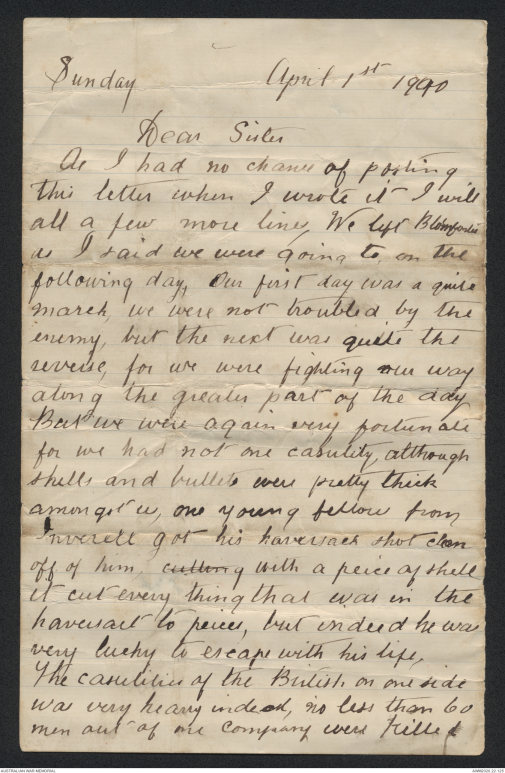 Sunday April 1st 1900
Dear Sister
As I had no chance of posting
this letter when I wrote it I will
all a few more lines, We left Blomfontein
as I said we were going to, on the
following day, Our first day was a quite
march, we were not troubled by the
enemy, but the next was quite the
reverse, for we were fighting our way
along the greater part of the day
But we were again very fortunate
for we had not one casulity, although
shells and bullets were pretty thick
amongst us, one young fellow from
Inverell got his haversack shot clean
off of him, cutting with a peice of shell
it cut every thing that was in the
haversact to peices, but indeed he was
very lucky to escape with his life,
The casulities of the British on one side
was very heavy indeed, no less than 60
men out of one company were killed
AUSTRALIAN WAR MEMORIAL